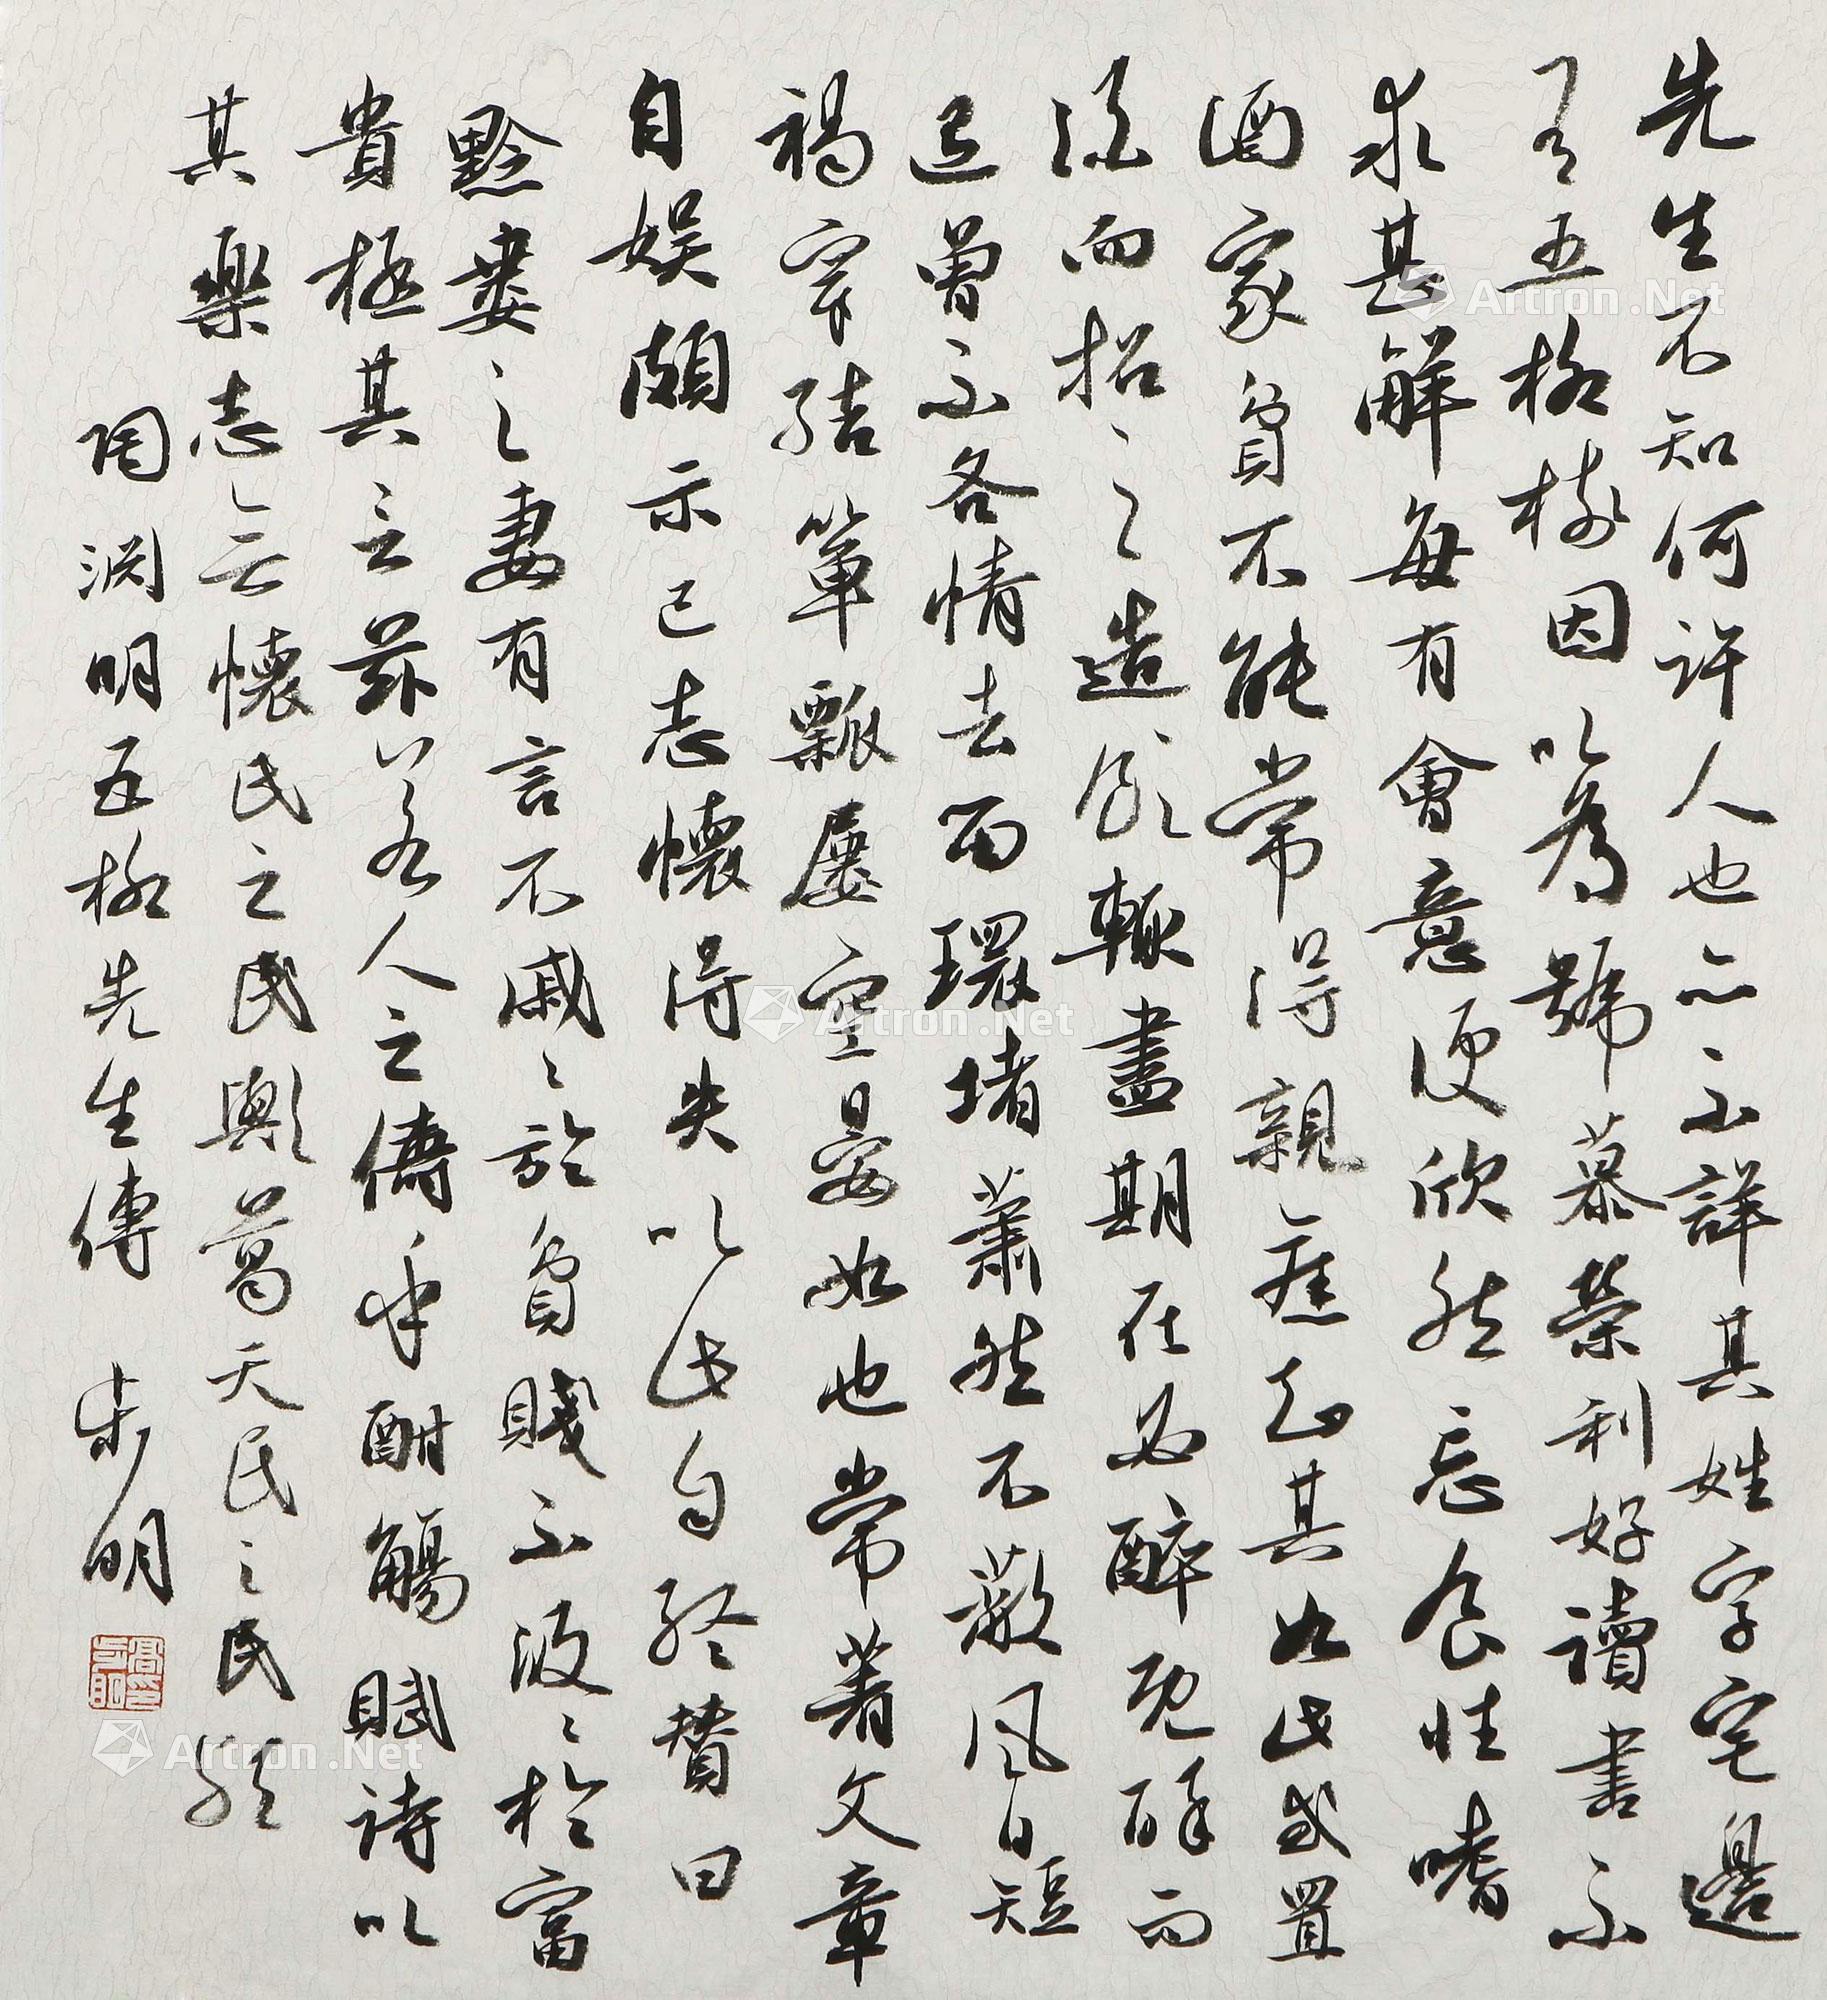 先生不知何許人也亦不詳其姓字宅邊
有五柳樹因以為號慕榮利好讀書不
求甚解每有會意便欣然忘食性嗜
酒家貧不能常得親舊知其如此或置
酒而招之造飲輒盡期在必醉既醉而
退曾不吝情去留環堵蕭然不蔽風日短
褐穿結簞瓢屢空晏如也常著文章
自娛頗示己志懷得失以此自終贊曰
黔婁之妻有言不戚〻於貧賤不汲〻於富
貴極其言茲若人之儔乎酣觴賦詩以
其樂志無懷氏之民歟葛天氏之民歟
陶淵明五柳先生傳 步明
Artron.Net
Artron.Net
Artron.Net